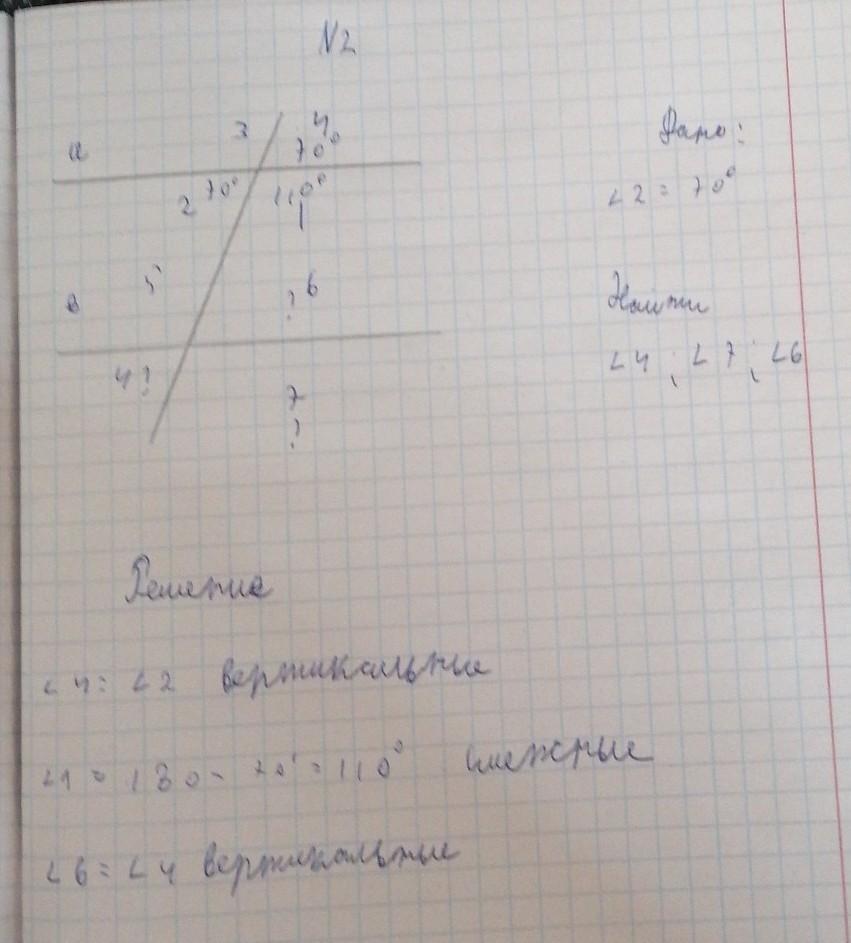 N2
3 4
а 70°
2 70° 110°
1
5
в ? 6
4 ?
7
?
Дано:
∠2 = 70°
Найти
∠4 ; ∠7 ; ∠6
Решение
∠4 = ∠2 вертикальные
∠1 = 180 - 70° = 110° смежные
∠6 = ∠4 вертикальные